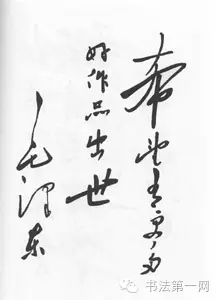 希望有更多
好作品出世
毛泽东
书法第一网